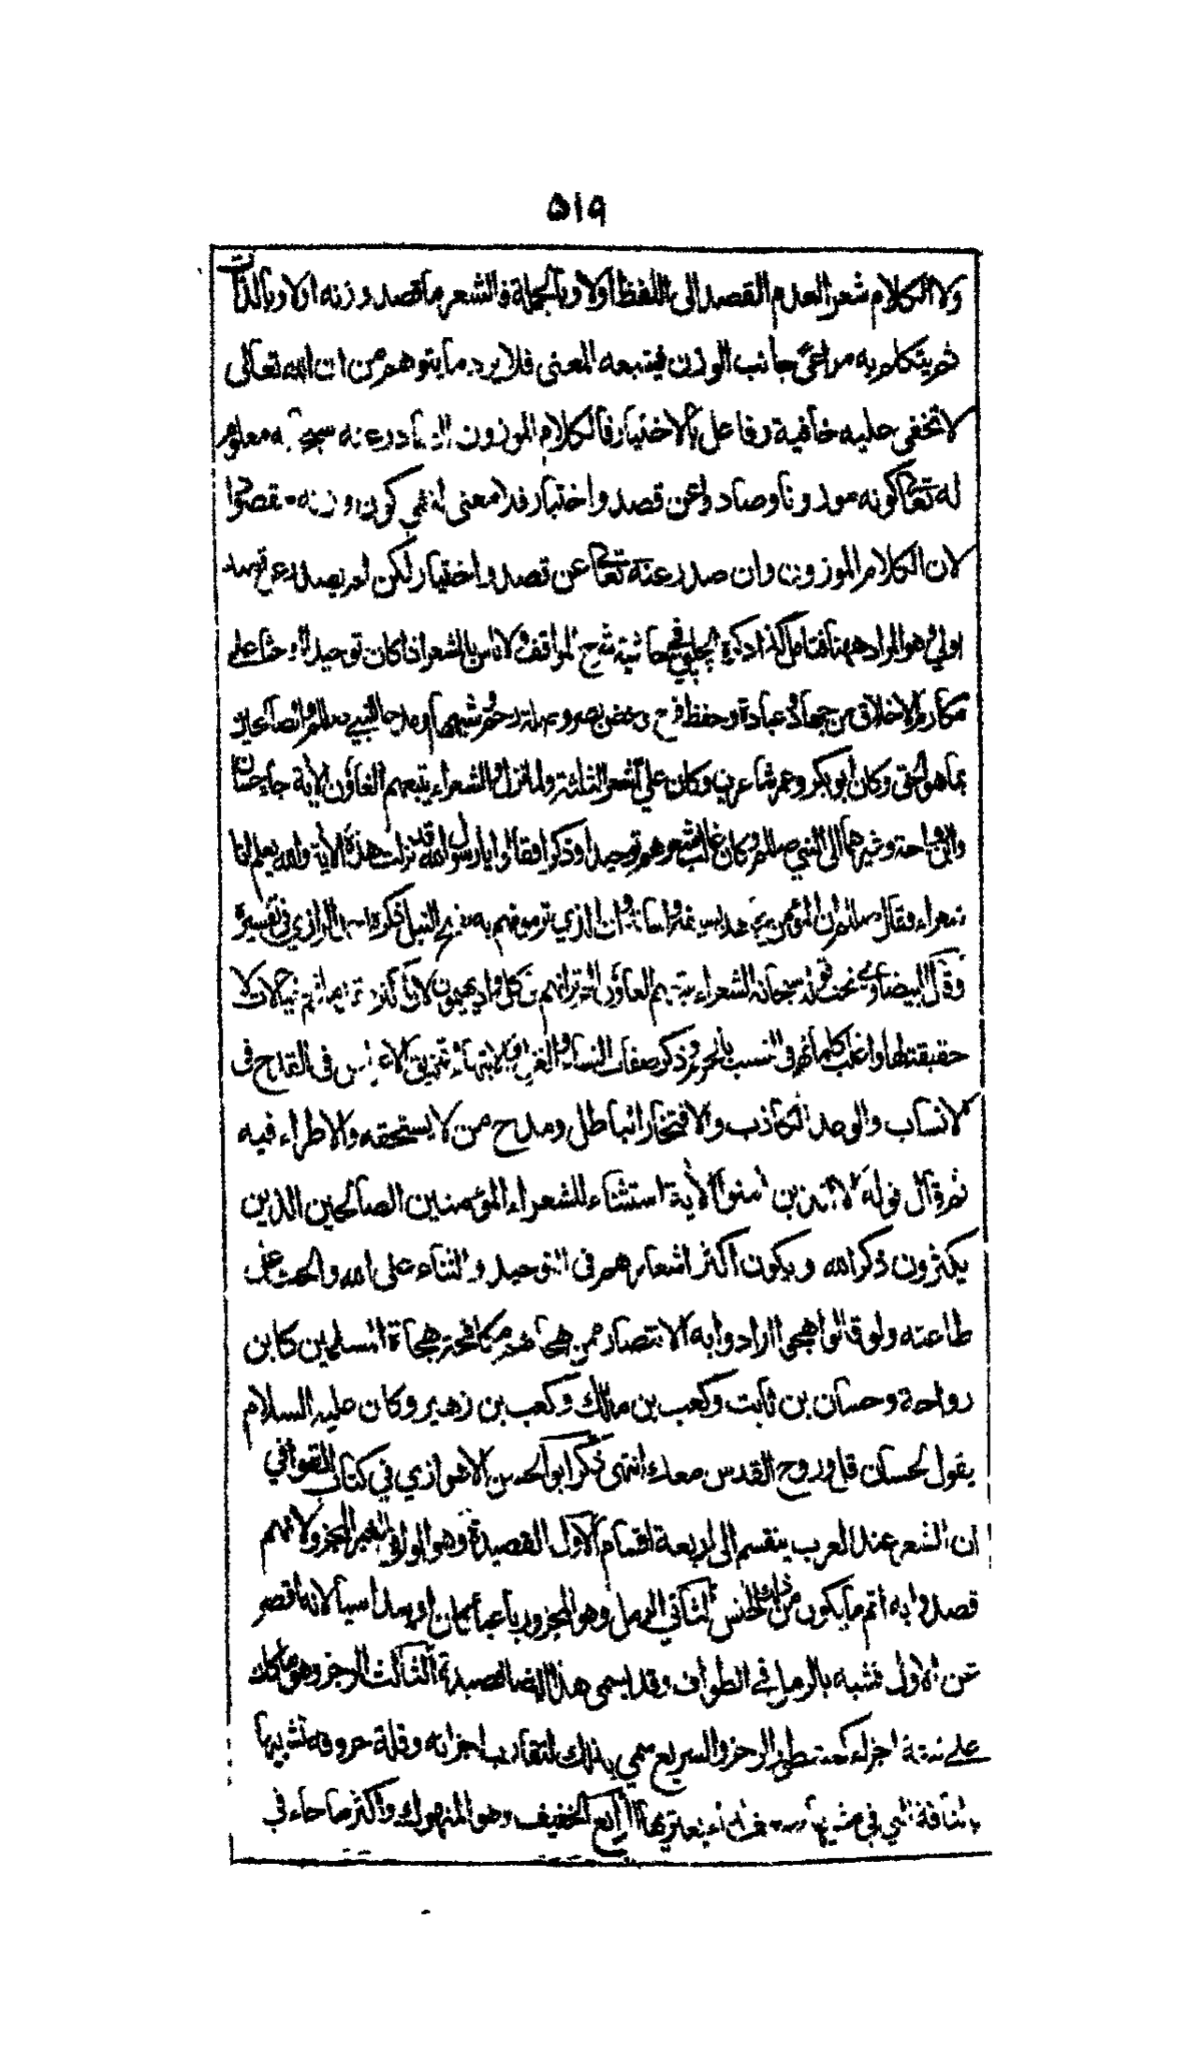 ٥١٩
ولا الكلام شعر العدم القصد الى اللفظ اولا وبالجملة فالشعر ما قصد وزنه اولا وبالذات
ثم يتكلم به مراعى جانب الوزن فيتبعه المعنى فلا يرد ما يتوهم من ان الله تعالى
لا تخفى عليه خافية وفاعل بالاختيار فالكلام الموزون الصادر عنه سبحانه معلوم
له تعالى كونه موزونا وصادرا عن قصد واختيار فلا معنى لنفي كون وزنه مقصودا
لان الكلام الموزون وان صدر عنه تعالى عن قصد واختيار لكن لم يصدر عن قصد
اولي وهو المراد ههنا فتامل كذا ذكره الچلپي في حاشية شرح المواقف ولا باس بالشعر اذا كان توحيدا او حثا على
مكارم الاخلاق من جهاد وعبادة وحفظ فرج وغض بصر وصلة رحم وشبهها او مدحا للنبي صلعم والصالحين
بما هو الحق وكان ابو بكر وعمر شاعرين وكان علي اشعر الثلثة ولما نزل والشعراء يتبعهم الغاؤن الآية جاء حسان
وابن رواحة وغيرهما الى النبي صلعم وكان غالب شعرهم توحيدا وذكرا فقالوا يا رسول الله قد نزلت هذه الآية والله يعلم انا
شعراء فقال صلعم ان المؤمن يجاهد بسيفه ولسانه وان الذي ترمونهم به نضح النبل ذكره الرازي في تفسيره
وقال البيضاوي تحت قوله سبحانه والشعراء يتبعهم الغاؤن الم تر انهم في كل واد يهيمون لان اكثر مقدماتهم خيالات لا
حقيقة لها واغلب كلماتهم في النسيب بالحرم وذكر صفات النساء والغزل والابتهار وتمزيق الاعراض في القدح في
الانساب والوعد الكاذب والافتخار الباطل ومدح من لا يستحقه والاطراء فيه
ثم قال قوله الا الذين آمنوا الآية استثناء للشعراء المؤمنين الصالحين الذين
يكثرون ذكر الله ويكون اكثر اشعارهم في التوحيد والثناء على الله والحث على
طاعته ولو قالوا هجوا ارادوا به الانتصار ممن هجاهم مكافحة هجاة المسلمين كابن
رواحة وحسان بن ثابت وكعب بن مالك وكعب بن زهير وكان عليه السلام
يقول لحسان قل وروح القدس معك انتهى ذكر ابو الحسن الاهوازي في كتاب القوافي
ان الشعر عند العرب ينقسم الى اربعة اقسام الاول القصيدة وهو الوافي الغير المجزو لانهم
قصدوا به اتم ما يكون من ذلك الجنس الثاني الرمل وهو المجزو رباعيا كان او سداسيا لانه اقصر
عن الاول فشبه بالرمل في الطواف وقد يسمى هذا ايضا قصيدة الثالث الرجز وهو ما كان
على ثلثة اجزاء كمشطور الرجز والسريع سمي بذلك لتقارب اجزائه وقلة حروفه تشبيها
بالناقة التي في مشيها ضعف لداء يعتريها الرابع الخفيف وهو المنهوك واكثر ما جاء في